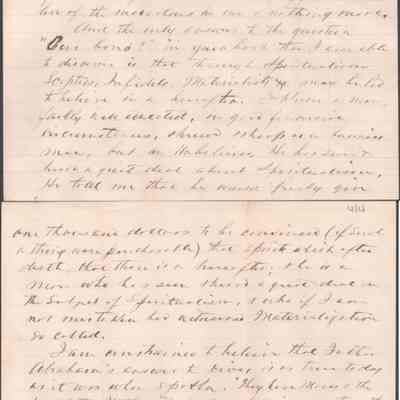 of the
And the only answer to the question
"Cui bono?" in your book that I am able
to discover is that through Spiritualism
Sceptics, Infidels, Materialists &c may be led
to believe in a hereafter. I
in good
circumstances, shrewd sharp business
man, but an Unbeliever. He has seen &
heard a great deal about Spiritualism,
He told me that he would freely give
one thousand dollars to be convinced (if such
a thing were purchasable) that Spirits exist after
death, that there is a hereafter, & he is a
man who has seen & heard a great deal on
the Subject of Spiritualism, & who if I am
not mistaken has witnessed Materialization
so called.
I am constrained to believe that Father
Abraham's answer to Dives is as true today
as it was when spoken. "They have Moses & the